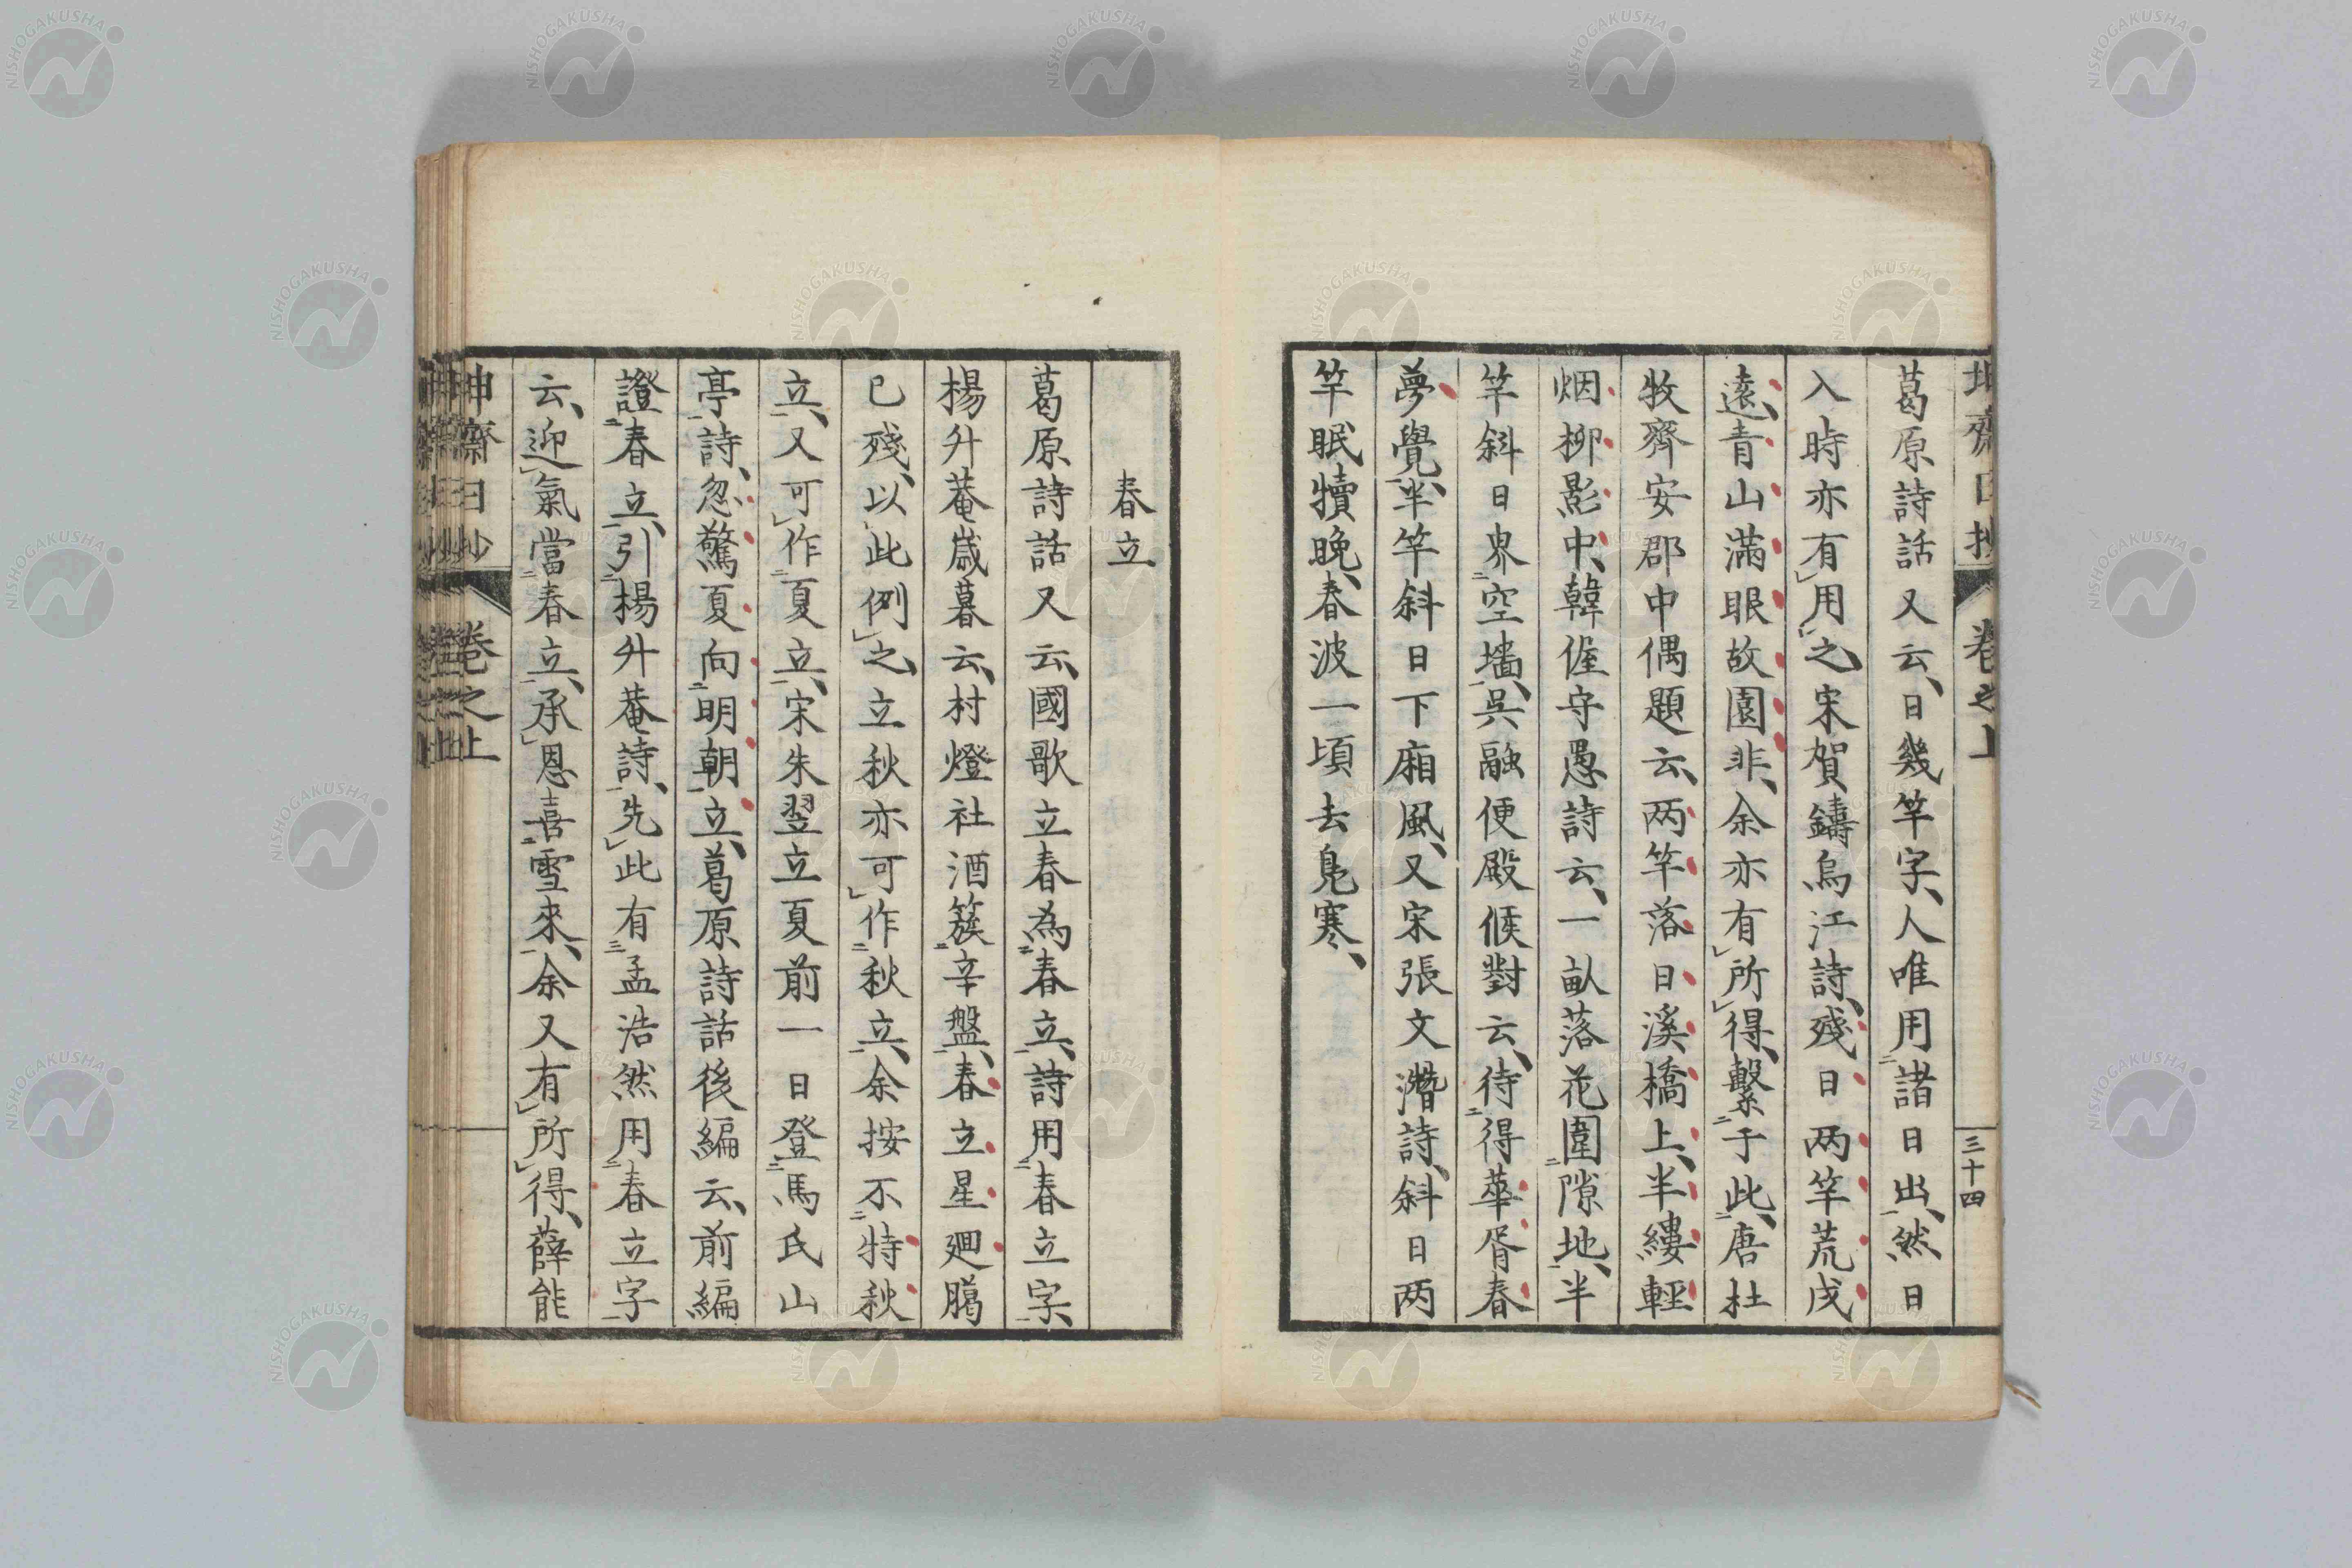 坤齋日抄 卷之上 三十四
葛原詩話又云、日幾竿字、人唯用諸日出、然日
入時亦有用之、宋賀鑄烏江詩、殘日两竿荒戍
遠、青山滿眼故園非、余亦有所得、繫于此、唐杜
牧齊安郡中偶題云、两竿落日溪橋上、半縷輕
烟柳影中、韓偓守愚詩云、一畝落花圍隙地、半
竿斜日界空墻、吳融便殿候對云、待得華胥春
夢覺、半竿斜日下廂風、又宋張文潛詩、斜日两
竿眠犢晚、春波一頃去鳧寒、
春立
葛原詩話又云、國歌立春為春立、詩用春立字、
楊升菴歲暮云、村燈社酒簇辛盤、春立星廻臈
已殘、以此例之、立秋亦可作秋立、余按不特秋
立、又可作夏立、宋朱翌立夏前一日登馬氏山
亭詩、忽驚夏向明朝立、葛原詩話後編云、前編
證春立、引楊升菴詩、先此有孟浩然用春立字
云、迎氣當春立、承恩喜雪來、余又有所得、薛能
坤齋日抄 卷之上